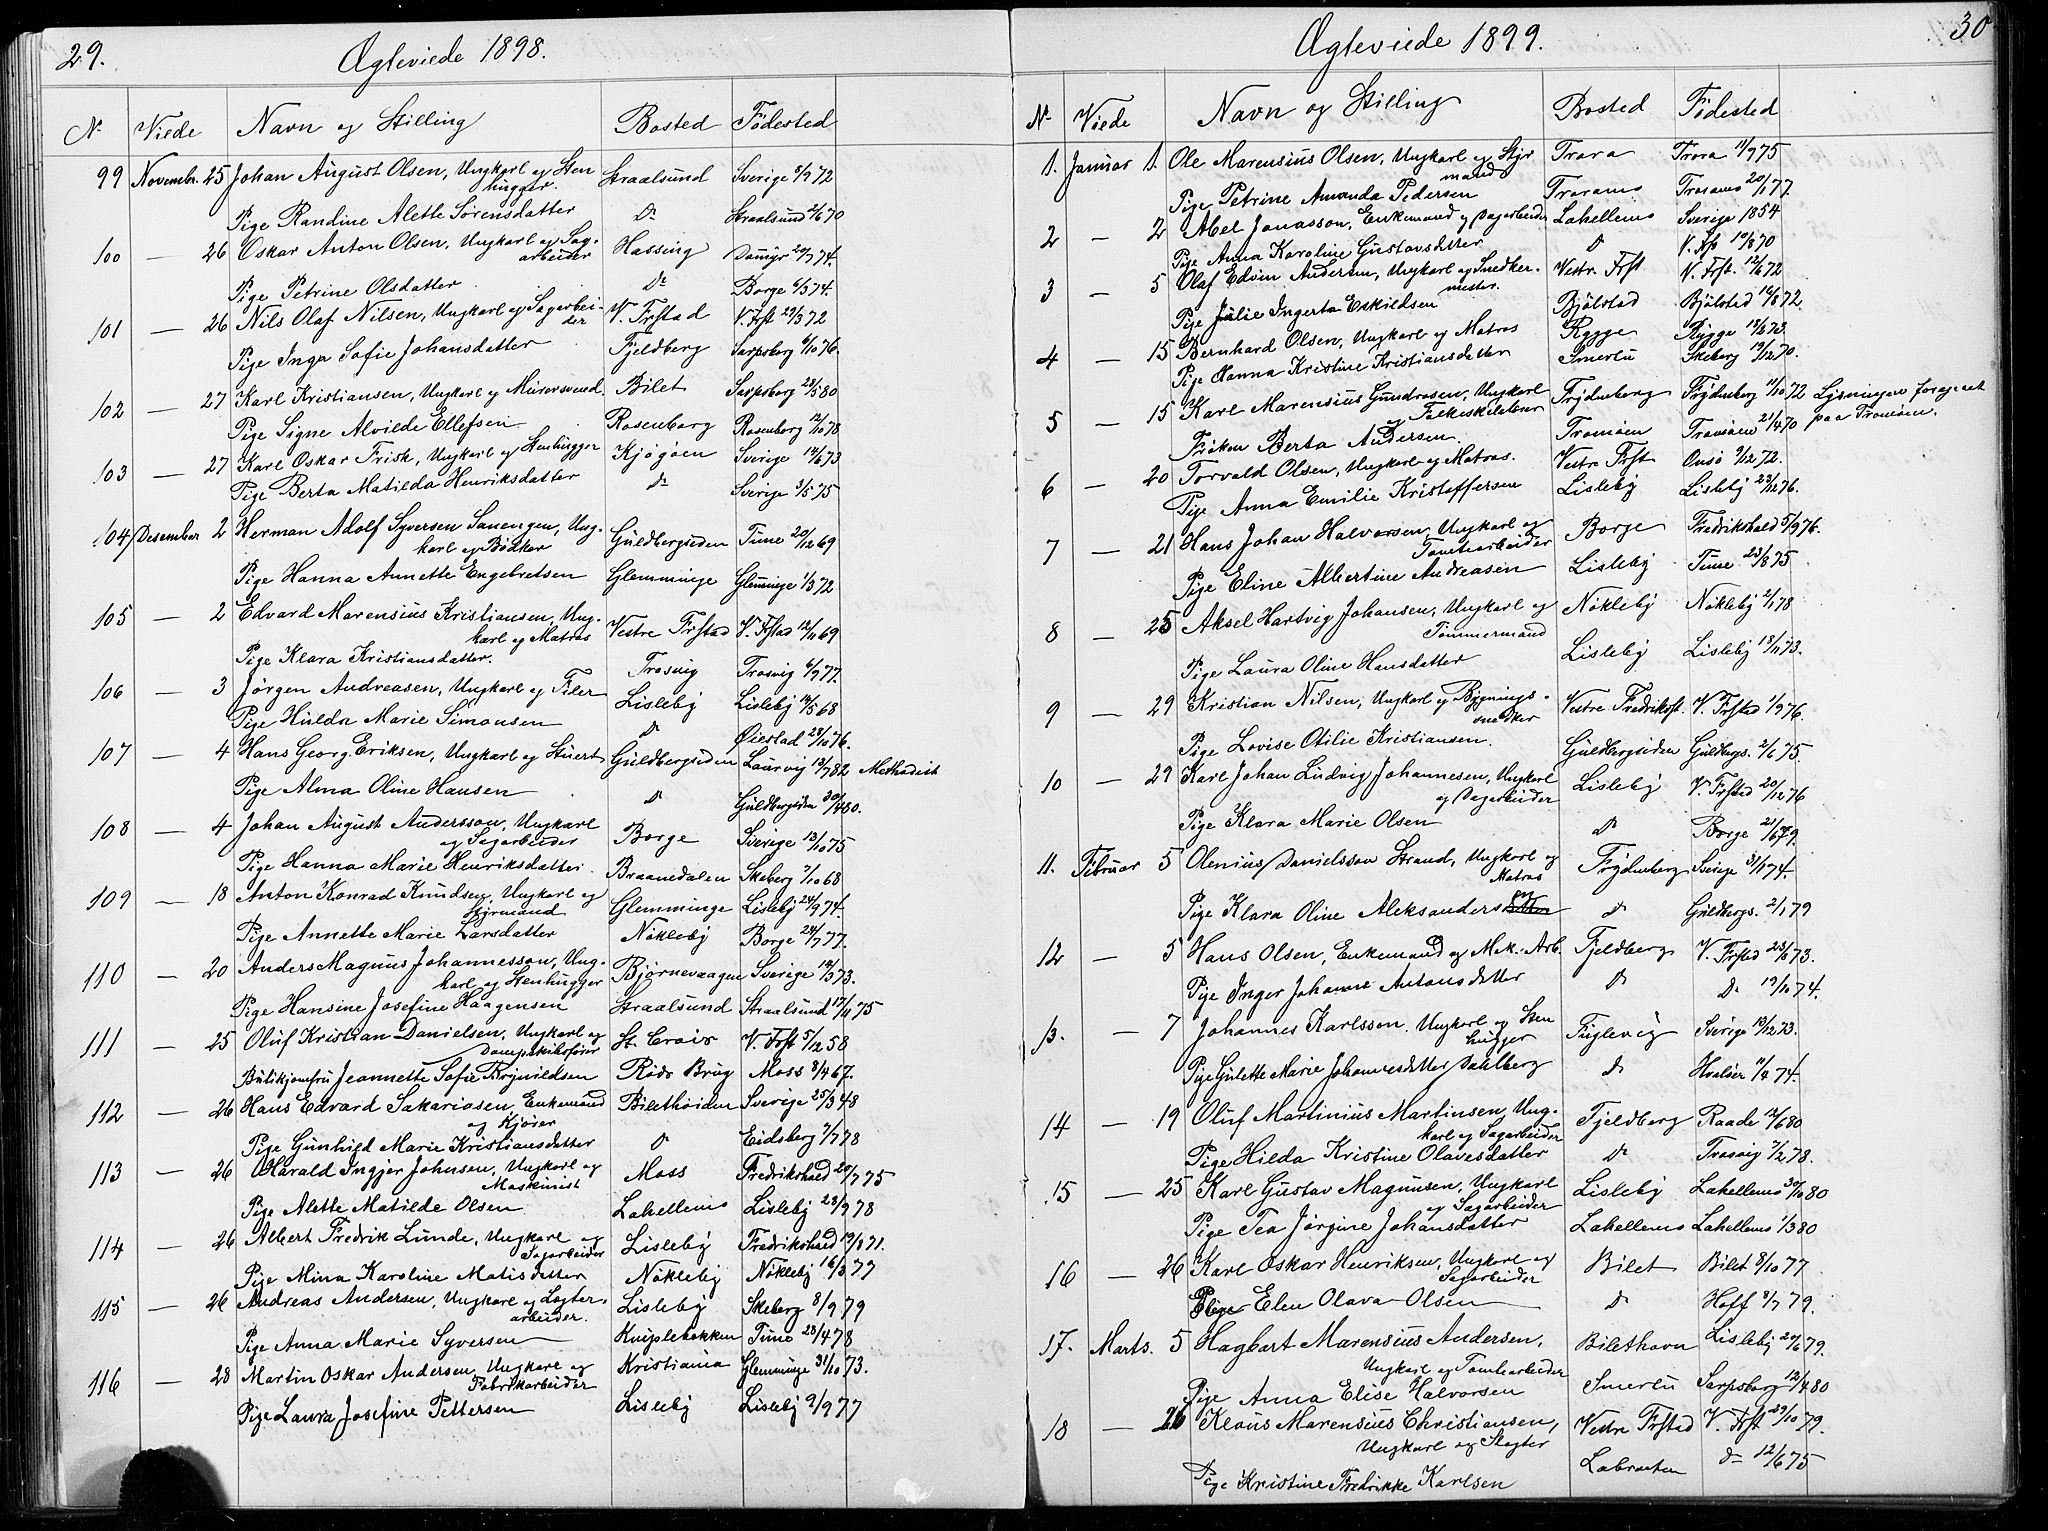 29.
Ægteviede 1898.
N. Viede Navn og Stilling Bosted Fødested
99 Novembr. 25 Johan August Olsen, Ungkarl og Sten Straalsund Sverige 8/9 72
hugger.
Pige Randine Alette Sørensdatter Do Straalsund 2/6 70
100 — 26 Oskar Anton Olsen, Ungkarl og Sag- Hassing 20/7 74.
arbeider
Pige Petrine Olsdatter Do Borge 6/5 74.
101 — 26 Nils Olaf Nilsen, Ungkarl og Sagarbei- V. Frstad V. Frst 29/3 72
der
Pige Inga Sofie Johansdatter Fjeldberg Sarpsborg 6/10 76.
102 — 27 Karl Kristiansen, Ungkarl og Murersvend. Bilet Sarpsborg 23/5 80
Pige Signe Alvilde Ellefsen Rosenborg Rosenborg 12/10 78
103 — 27 Karl Oskar Frisk, Ungkarl og Stenhugger Kjøgøen Sverige 14/6 73
Pige Berta Matilda Henriksdatter Do Sverige 3/5 75
104 Desember 2 Herman Adolf Syversen Sanengen, Ung- Guldbergsiden Tune 20/12 69
karl og Bødker
Pige Hanna Annette Engebretsen Glemminge Glemminge 1/3 72
105 — 2 Edvard Marensius Kristiansen, Ung- Vestre Frstad V. Frstad 12/11 69
karl og Matros
Pige Klara Kristiansdatter. Trosvig Trosvig 6/9 77.
106 — 3 Jørgen Andreasen, Ungkarl og Filer Lisleby Lisleby 14/5 68
Pige Hulda Marie Simonsen Do Øiestad 28/10 76.
107 — 4 Hans Georg Eriksen, Ungkarl og Stuert Guldbergsiden Laurvig 13/7 82 Methodist
Pige Alma Oline Hansen Do Guldbergsiden 30/4 80.
108 — 4 Johan August Andersson, Ungkarl Borge Sverige 13/10 75
og Sagarbeider
Pige Hanna Marie Henriksdatter. Braanedalen Skeberg 7/10 68
109 — 18 Anton Konrad Knudsen, Ungkarl og Glemminge Lisleby 24/9 74.
Styrmand
Pige Annette Marie Larsdatter Nøkleby Borge 24/7 77.
110 — 20 Anders Magnus Johannesson, Ung- Bjørnevaagen Sverige 18/3 73.
karl og Stenhugger
Pige Hansine Josefine Haagensen Straalsund Straalsund 17/11 75
111 — 25 Oluf Kristian Danielsen, Ungkarl og St. Croix V. Frst 5/12 58
Dampskibsfører
Butikjomfru Jeannette Sofie Brynildsen Røds Brug Moss 8/4 67.
112 — 26 Hans Edvard Sakariasen, Enkemand Bilethøiden Sverige 25/3 48
og Kjører
Pige Gunhild Marie Kristiansdatter Do Eidsberg 7/7 78
113 — 26 Harald Ingjer Johnsen, Ungkarl og Moss Fredrikshald 20/7 75
Maskinist
Pige Alette Matilde Olsen Lahellems Lisleby 23/9 78
114 — 26 Albert Fredrik Lunde, Ungkarl og Lisleby Fredrikshald 19/8 71.
Sagarbeider
Pige Mina Karoline Matisdatter Nøkleby Nøkleby 16/3 77
115 — 26 Andreas Andersen, Ungkarl og Lagter- Lisleby Skeberg 8/9 79
arbeider.
Pige Anna Marie Syversen Kniplebakken Tune 23/4 78
116 — 28 Martin Oskar Andersen, Ungkarl og Kristiania Glemminge 31/10 73.
Fabrikarbeider
Pige Laura Josefine Pettersen Lisleby Lisleby 2/9 77
30
Ægteviede 1899.
N. Viede Navn og Stilling Bosted Fødested
1. Januar 1. Ole Marensius Olsen, Ungkarl og Styr Trara Trara 11/9 75
mand
Pige Petrine Amanda Pedersen Traraens Traraens 20/1 77.
2 — 2 Abel Jonasson, Enkemand og Dagarbeider Lahellems Sverige 1854
Pige Anna Karoline Gustavsdatter Do 19/8 70
3 — 5 Olaf Edvin Andersen, Ungkarl og Snedker- Vestr. Frst V. Frst. 12/6 72
mester.
Pige Julie Ingerta Eskildsen Bjølstad Bjølstad 16/8 72.
4 — 15 Bernhard Olsen, Ungkarl og Matros Rygge Rygge 18/6 73.
Pige Hanna Kristine Kristiansdatter Smertu Skeberg 19/12 70.
5 — 15 Karl Marensius Gundrosen, Ungkarl Frydenberg Frydenberg 11/10 72 Lysningen foregaaet
og Folkeskolelærer paa Tromøen.
Frøken Berta Andersen. Tromøen Tromøen 21/4 70
6 — 20 Torvald Olsen, Ungkarl og Matros. Vestre Frst Onsø 9/12 72.
Pige Anna Emilie Kristoffersen Lisleby Lisleby 23/12 76.
7 — 21 Hans Johan Halvorsen, Ungkarl og Borge Fredrikshald 5/9 76.
Tomtearbeider
Pige Eline Albertine Andreasen Lisleby Tune 23/8 75
8 — 25 Aksel Hartvig Johansen, Ungkarl og Nøkleby Nøkleby 2/1 78
Tømmermand
Pige Laura Oline Hansdatter Lisleby Lisleby 18/11 73.
9 — 29 Kristian Nilsen, Ungkarl og Bygnings- Vestre Fredrikst. V. Frstad 1/9 76.
snedker
Pige Lovise Otilie Kristiansen. Guldbergsiden Guldbergs. 2/6 75.
10 — 29 Karl Johan Ludvig Johannesen, Ungkarl Lisleby V. Frstad 20/12 76
og Dagarbeider
Pige Klara Marie Olsen Do Borge 21/6 79.
11. Februar 5 Olenius Danielsson Strand, Ungkarl og Frydenberg Sverige 31/1 74.
Matros
Pige Klara Oline Aleksandersen Do Guldbergs. 2/1 79
12 — 5 Hans Olsen, Enkemand og Mek. Arb. Fjeldberg V. Frstad 23/8 73.
Pige Inger Johanne Antonsdatter Do Do 19/10 74.
13. — 7 Johannes Karlsson. Ungkarl og Sten Fuglevig Sverige 13/12 73.
hugger
Pige Gulette Marie Johannesdatter Dahlberg Do Hvaløer 11/4 74.
14 — 19 Oluf Martinius Martinsen, Ung- Fjeldberg Raade 12/6 80
karl og Sagarbeider
Pige Hilda Kristine Olavesdatter Do Trosvig 7/2 78.
15 — 25 Karl Gustav Magnusen, Ungkarl Lisleby Lahellems 30/10 80
og Sagarbeider
Pige Tea Jørgine Johansdatter Lahellems Lahellems 1/3 80
16 — 26 Karl Oskar Henriksen, Ungkarl og Bilet Bilet 8/10 77
Sagarbeider
Pige Elen Olava Olsen Do Hoff 8/7 79.
17. Marts. 5 Hagbart Marensius Andersen, Bilethavn Lisleby 20/6 79.
Ungkarl og Tomtearbeider
Pige Anna Elise Halvorsen Smertu Sarpsborg 12/4 80
18 — 26 Klaus Marensius Christiansen, Vestre Frstad V. Frst 29/10 79.
Ungkarl og Slagter
Pige Kristine Fredrikke Karlsen Labraaten Do 12/6 75